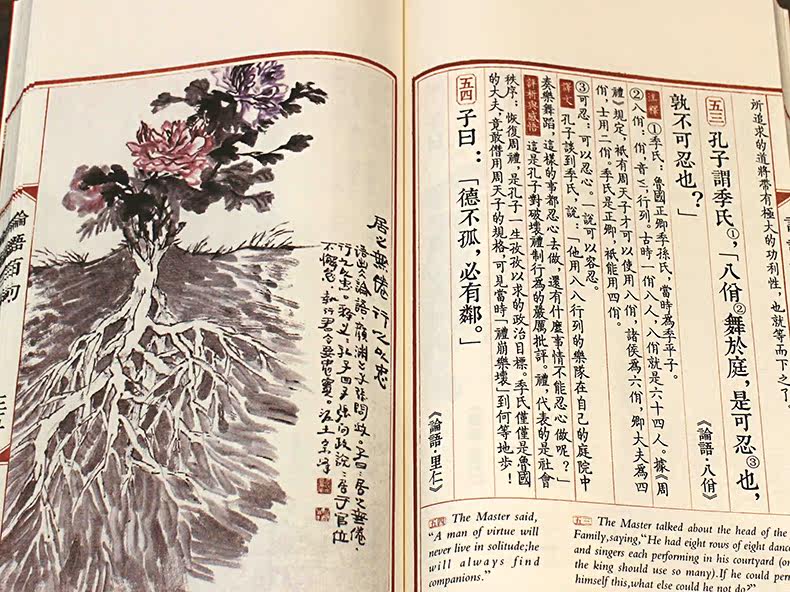 所追求的道將帶有極大的功利性，也就等而下之了。
五三 孔子謂季氏①，「八佾②舞於庭，是可忍③也，
孰不可忍也？」 《論語·八佾》
注釋 ①季氏：魯國正卿季孫氏，當時為季平子。
②八佾：佾，行列。古時一佾八人，八佾就是六十四人。據《周
禮》規定，衹有周天子才可以使用八佾，諸侯為六佾，卿大夫為四
佾，士用二佾。季氏是正卿，衹能用四佾。
③可忍：可以忍心。一說可以容忍。
譯文 孔子談到季氏，說：「他用八八行列的樂隊在自己的庭院中
奏樂舞蹈，這樣的事都忍心去做，還有什麼事情不能忍心做呢？」
評析與感悟 這是孔子對破壞禮制行為的嚴厲批評。禮，代表的是社會
秩序；恢復周禮，是孔子一生孜孜以求的政治目標。季氏僅僅是魯國
的大夫，竟敢僭用周天子的規格，可見當時「禮崩樂壞」到何等地步！
五四 子曰：「德不孤，必有鄰。」
《論語·里仁》
五三 The Master talked about the head of the
Family,saying,"He had eight rows of eight dance
and singers each performing in his courtyard (on
the king should use so many).If he could per
himself this,what else could he not do?"
五四 The Master said,
"A man of virtue will
never live in solitude;he
will always find
companions."
居之無倦 行之以忠
語出論語顏淵 子張問政。子曰：居之無倦，
行之以忠。釋義：孔子回子張問政說：居于官位
不懈怠，執行君令要忠實。
論語百句